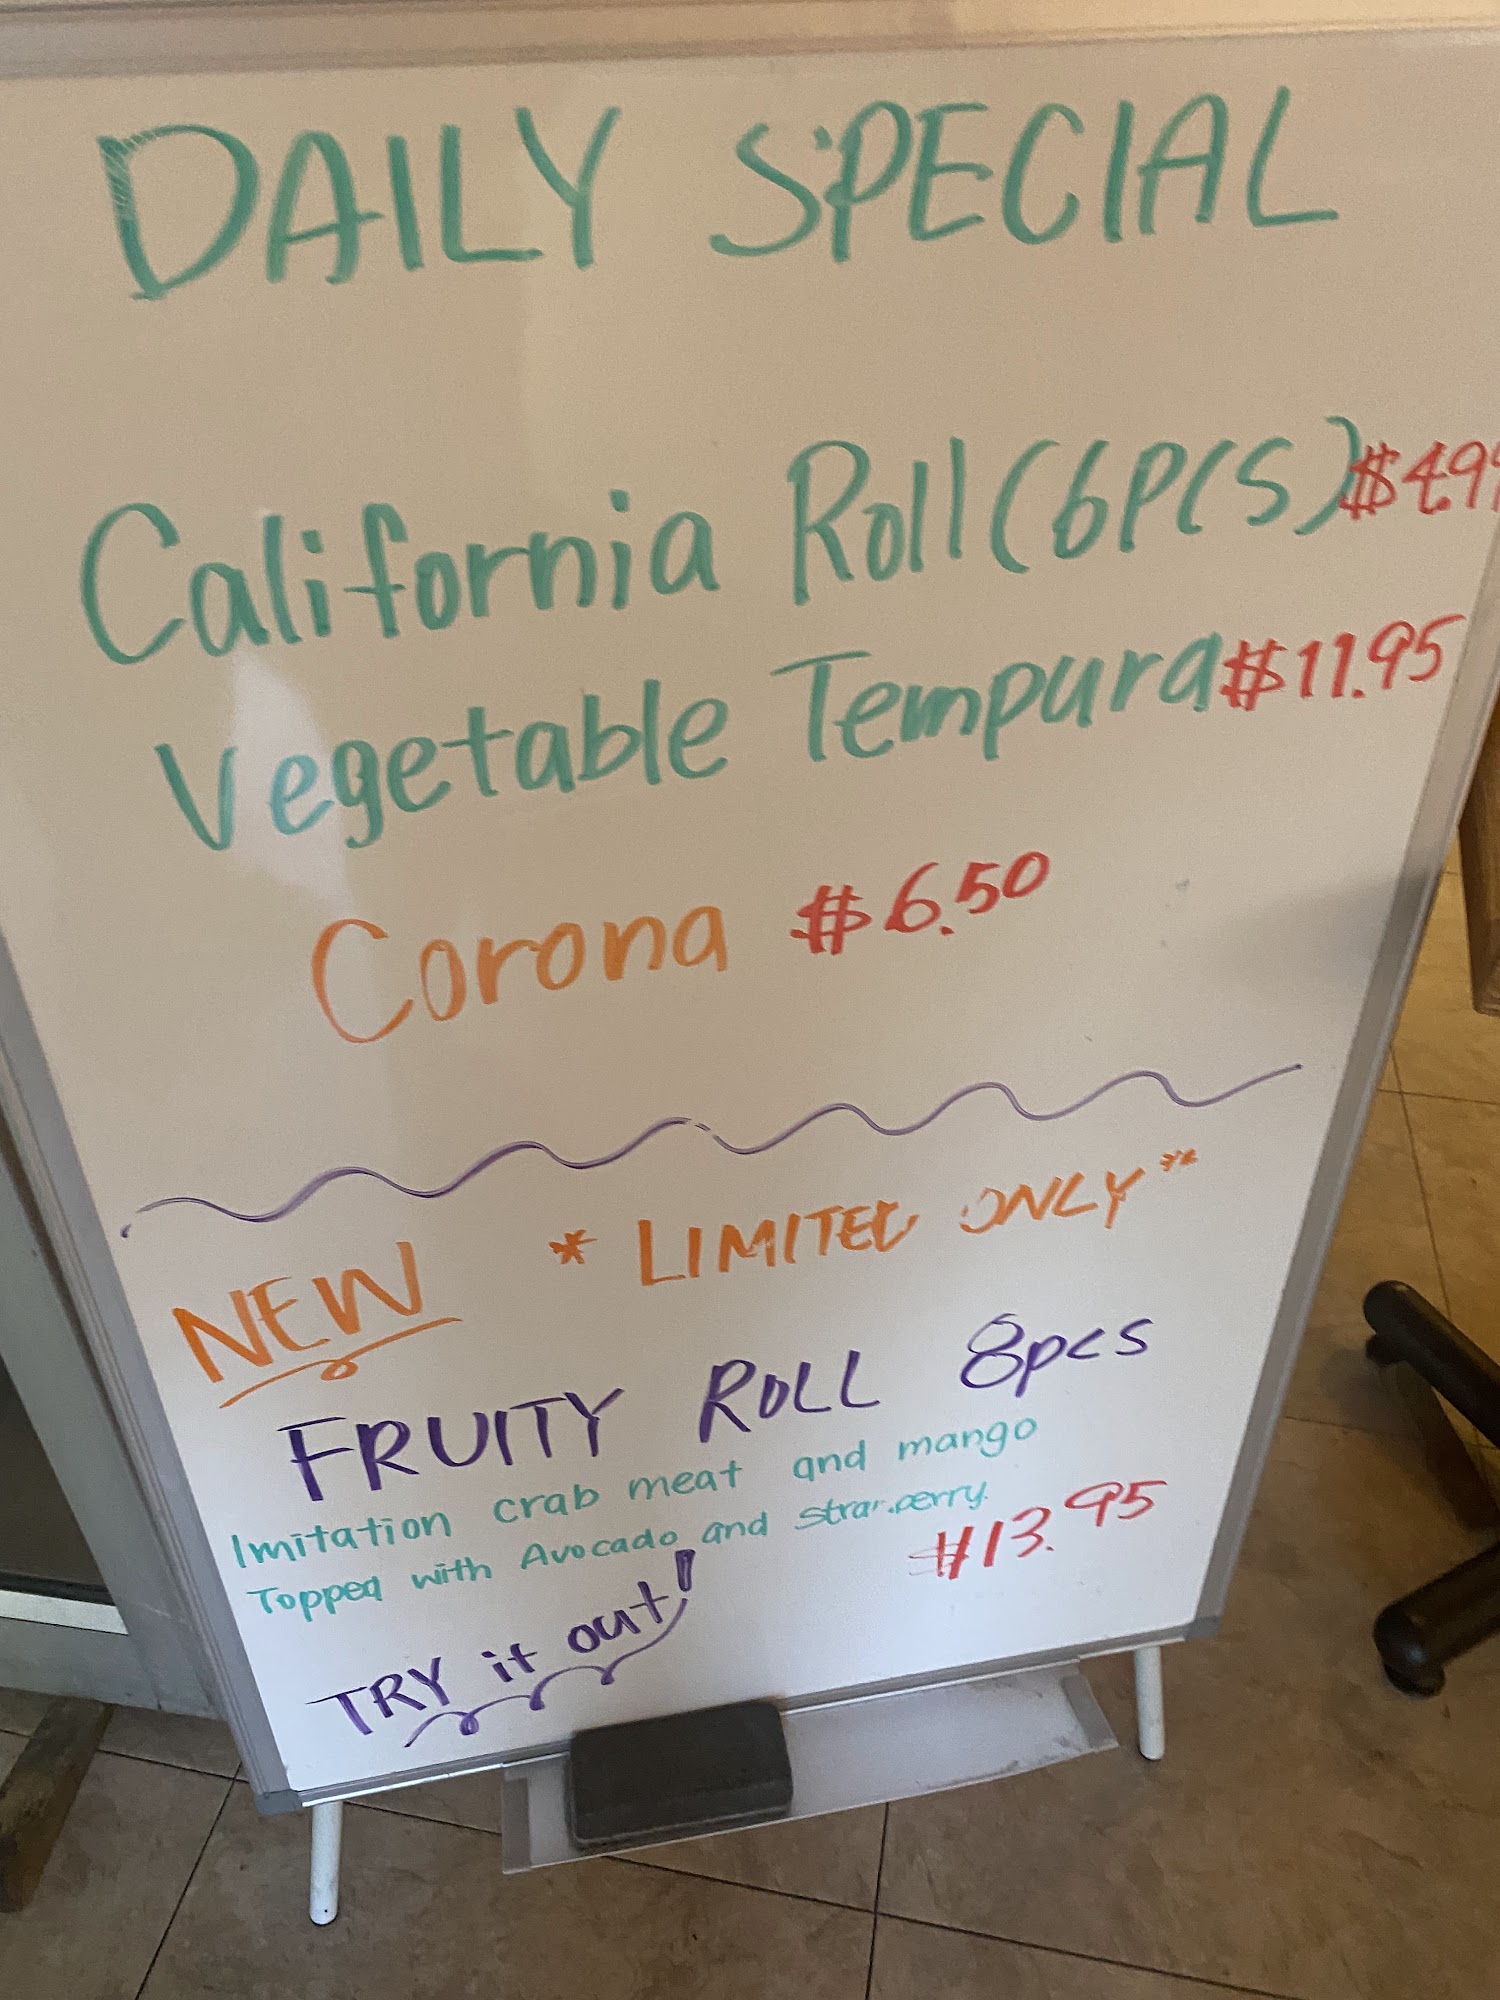 DAILY SPECIAL
California Roll (6PCS) $4.99
Vegetable Tempura $11.95
Corona $6.50
NEW * LIMITED ONLY **
FRUITY ROLL 8pcs
Imitation crab meat and mango
Topped with Avocado and strawberry.
$13.95
TRY it out!